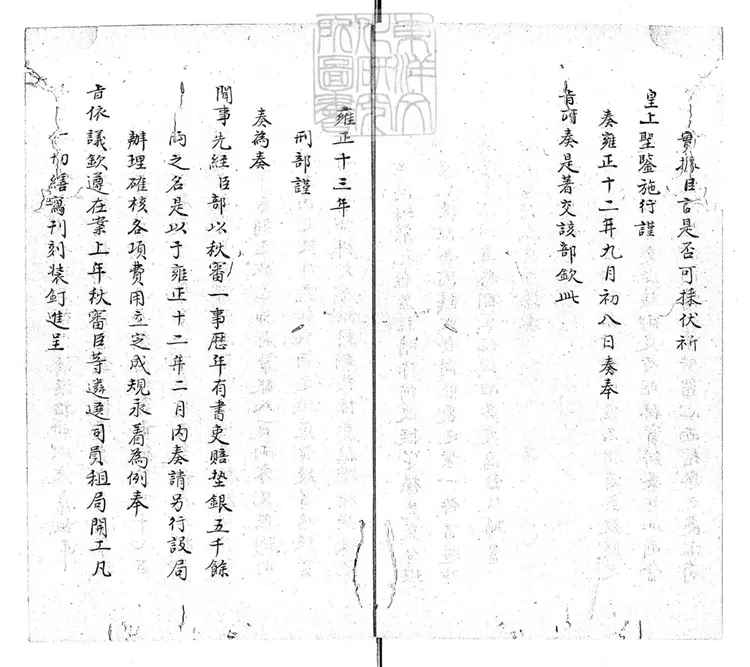 實據臣言是否可採伏祈
皇上聖鑒施行謹
奏雍正十二年九月初八日奏奉
旨所奏是著交該部欽此
雍正十三年
刑部謹
奏為奏
聞事先經臣部以秋審一事歷年有書吏賠墊銀五千餘
兩之名是以于雍正十二年二月內奏請另行設局
辦理確核各項費用立定成規永著為例奉
旨依議欽遵在案上年秋審臣等遴選司員租局開工凡
一切繕寫刊刻裝釘進呈
東洋文
化研究
所圖書